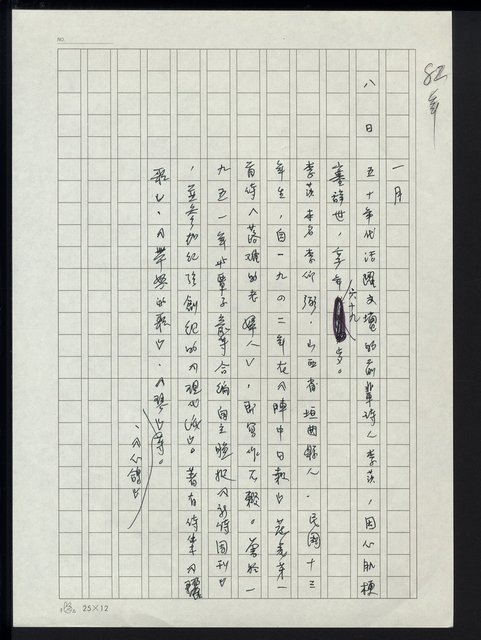 82年
一月
八日　五十年代活躍文壇的前輩詩人李莎，因心肌梗
塞辭世，享年六十九歲。
李莎本名李仰弼，山西省垣曲縣人，民國十三
年生，自一九四二年在《陣中日報》發表第一
首詩〈落難的老婦人〉，即寫作不輟。曾於一
九五一年與覃子豪等合編自立晚報《新詩週刊》
，並參加紀弦創組的《現代派》。著有詩集《驪
歌》、《帶怒的歌》、《琴》等。
、《心鴿》
NO.
25×12